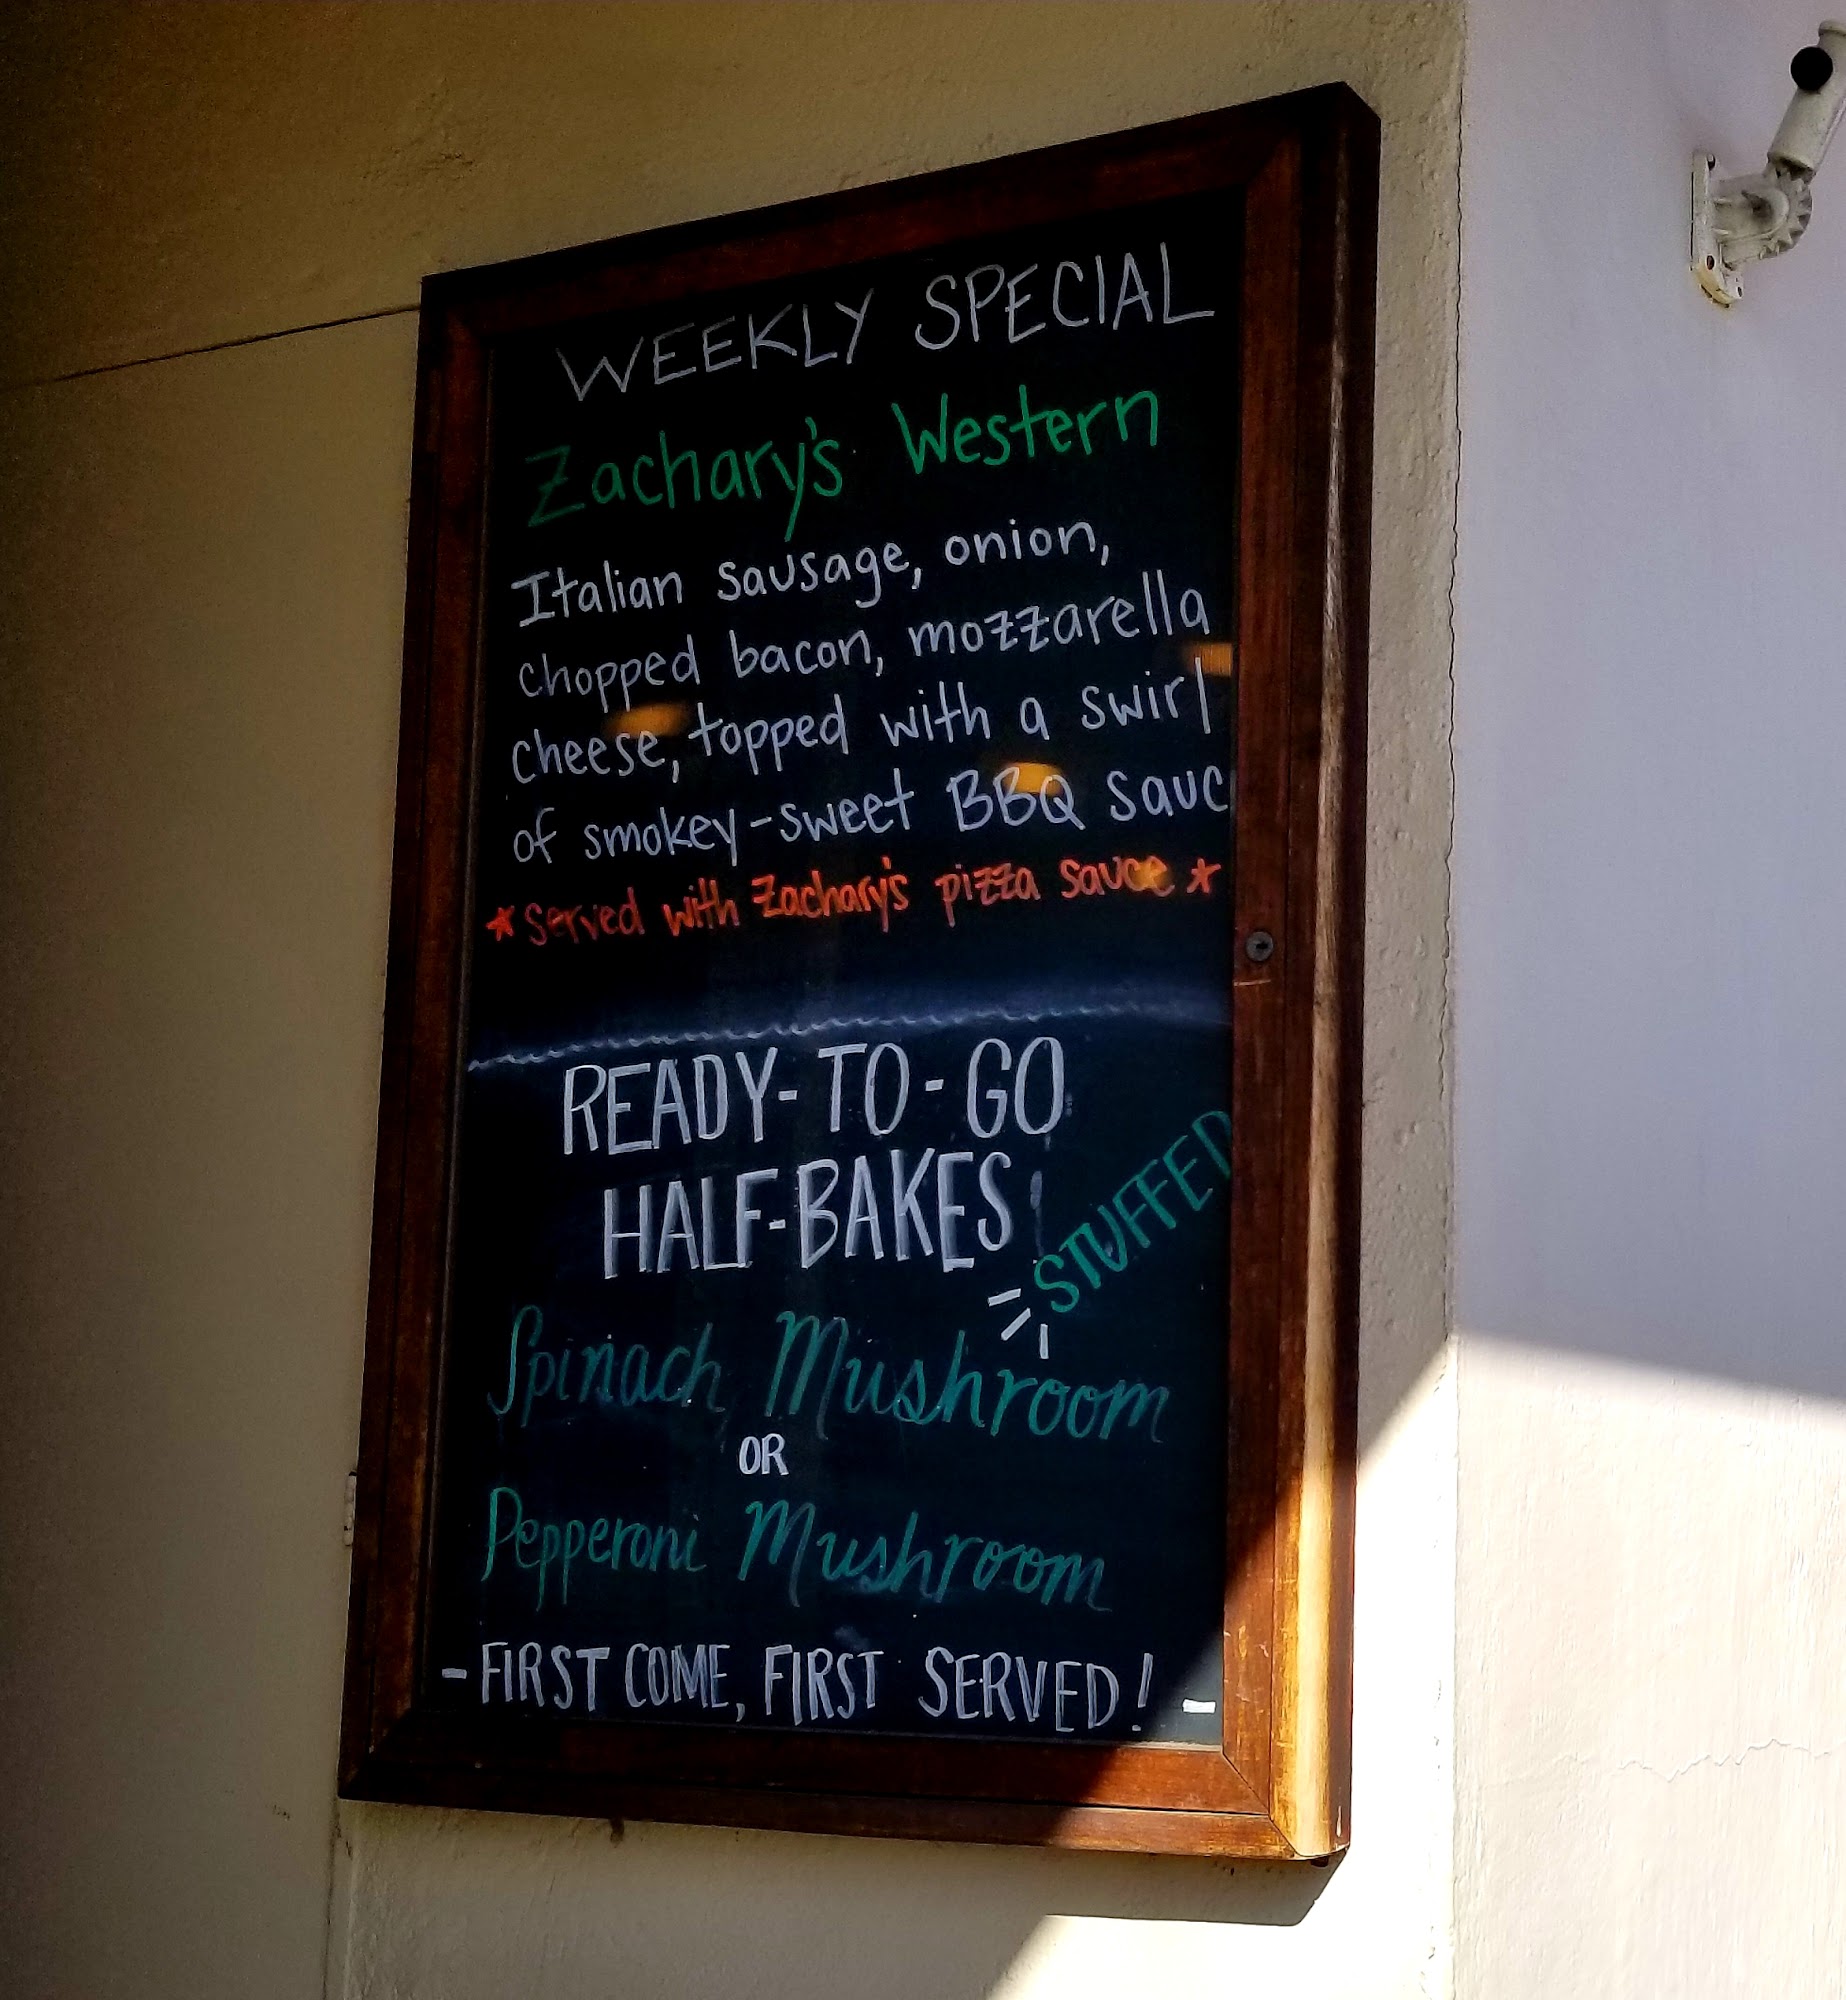 WEEKLY SPECIAL
Zachary's Western
Italian sausage, onion,
chopped bacon, mozzarella
cheese, topped with a swirl
of smokey-sweet BBQ sauc
* served with Zachary's pizza sauce *
READY-TO-GO
HALF-BAKES
STUFFED
Spinach Mushroom
OR
Pepperoni Mushroom
- FIRST COME, FIRST SERVED! -